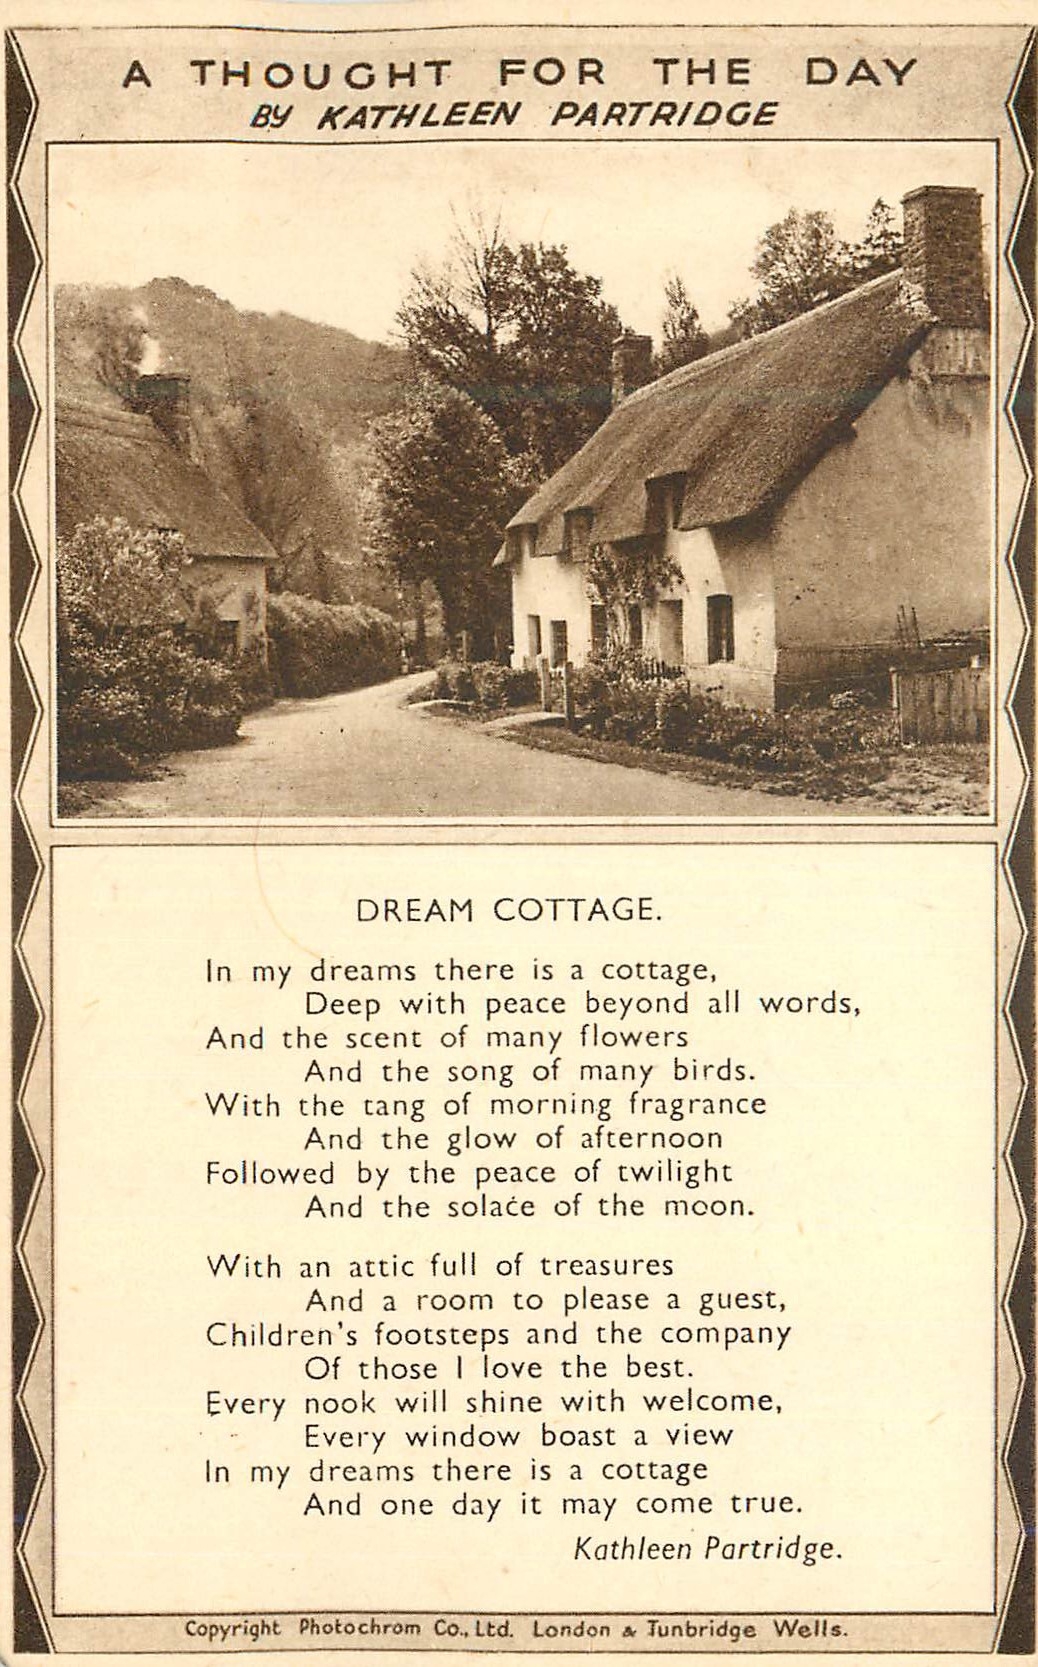 A THOUGHT FOR THE DAY
BY KATHLEEN PARTRIDGE
DREAM COTTAGE.
In my dreams there is a cottage,
Deep with peace beyond all words,
And the scent of many flowers
And the song of many birds.
With the tang of morning fragrance
And the glow of afternoon
Followed by the peace of twilight
And the solace of the moon.
With an attic full of treasures
And a room to please a guest,
Children's footsteps and the company
Of those I love the best.
Every nook will shine with welcome,
Every window boast a view
In my dreams there is a cottage
And one day it may come true.
Kathleen Partridge.
Copyright Photochrom Co., Ltd. London & Tunbridge Wells.